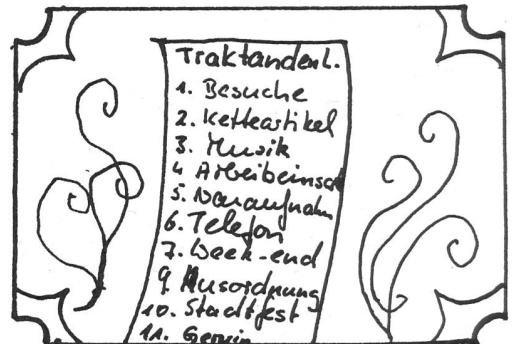 Traktandenl.
1. Besuche
2. Ketteartikel
3. Musik
4 Arbeibeinsa
5. Naraufnahm
6. Telefon
7. Week-end
9. Husordnung
10. Stadtfest
11.